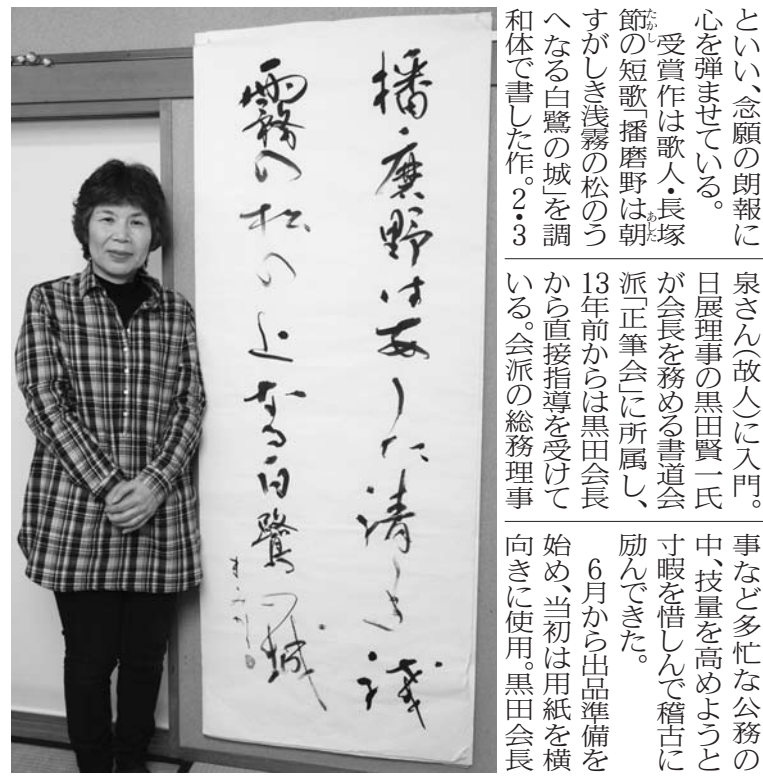 といい、念願の朗報に
心を弾ませている。
受賞作は歌人・長塚
節の短歌「播磨野は朝
たかし
あした
すがしき浅霧の松のう
へなる白鷺の城」を調
和体で書した作。2・3
泉さん(故人)に入門。
日展理事の黒田賢一氏
が会長を務める書道会
派「正筆会」に所属し、
13年前からは黒田会長
から直接指導を受けて
いる。会派の総務理事
事など多忙な公務の
中、技量を高めようと
寸暇を惜しんで稽古に
励んできた。
6月から出品準備を
始め、当初は用紙を横
向きに使用。黒田会長
播磨野はあした清しき浅
霧の松の上なる白鷺の城